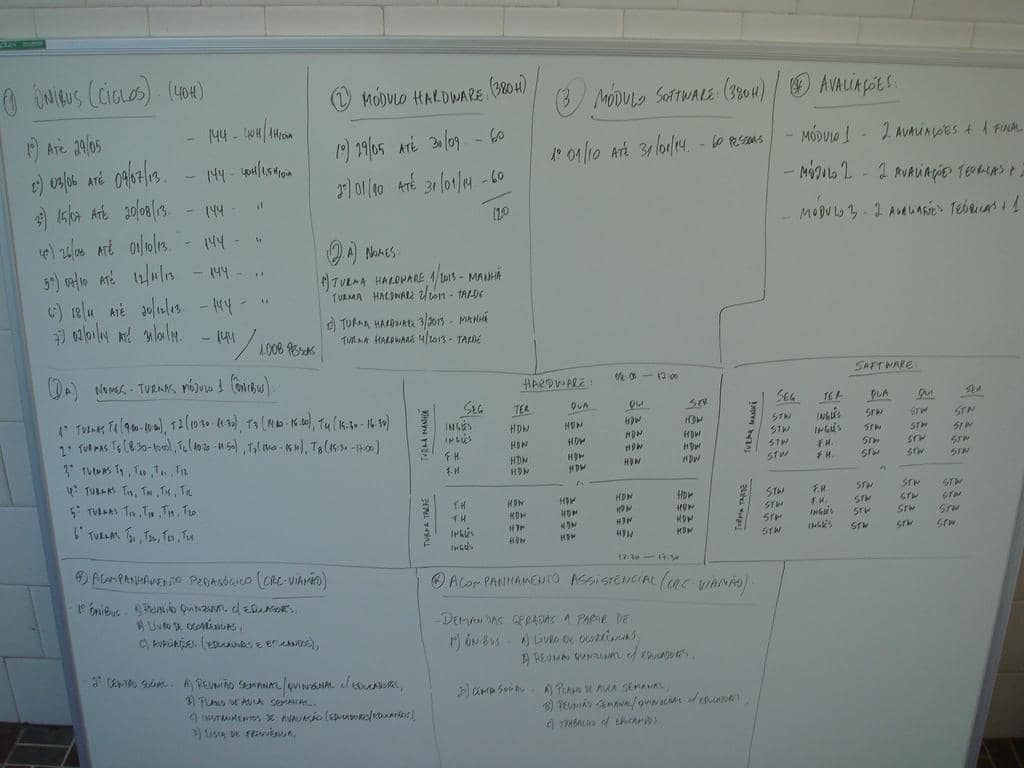 ① ÔNIBUS (CICLOS). (40H)
1º) ATÉ 29/05 - 144 - 40H/1H/DIA
2º) 03/06 ATÉ 09/07/13. - 144 - 40H/1,5H/DIA
3º) 15/07 ATÉ 20/08/13. - 144 - "
4º) 26/08 ATÉ 01/10/13. - 144 - "
5º) 07/10 ATÉ 12/11/13 - 144 - "
6º) 18/11 ATÉ 20/12/13. - 144 - "
7º) 02/01/14 ATÉ 31/01/14. - 144
1.008 PESSOAS
② MÓDULO HARDWARE: (380H)
1º) 29/05 ATÉ 30/09 - 60
2º) 01/10 ATÉ 31/01/14 - 60
120
② A) NOMES:
1º) TURMA HARDWARE 1/2013 - MANHÃ
TURMA HARDWARE 2/2013 - TARDE
2º) TURMA HARDWARE 3/2013 - MANHÃ
TURMA HARDWARE 4/2013 - TARDE
③ MÓDULO SOFTWARE: (380H)
1º 01/10 ATÉ 31/01/14. - 60 PESSOAS
AVALIAÇÕES:
- MÓDULO 1 - 2 AVALIAÇÕES + 1 FINAL
- MÓDULO 2 - 2 AVALIAÇÕES TEÓRICAS +
- MÓDULO 3 - 2 AVALIAÇÕES TEÓRICAS + 1
① A) NOMES - TURMAS MÓDULO 1 (ÔNIBUS).
1º TURMAS T1 (9:00-10:00), T2 (10:30-11:30), T3 (14:00-15:00), T4 (15:30-16:30)
2º TURMAS T5 (8:30-10:00), T6 (10:20-11:50), T7 , T8 (15:30-17:00)
3º TURMAS T9, T10, T11, T12
4º TURMAS T13, T14, T15, T16
5º TURMAS T17, T18, T19, T20
6º TURMAS T21, T22, T23, T24
HARDWARE: 08:00 - 12:00
SEG TER QUA QUI SEX
TURMA MANHÃ
INGLÊS HDW HDW HDW HDW
INGLÊS HDW HDW HDW HDW
F.H HDW HDW HDW HDW
F.H HDW HDW HDW HDW
TURMA TARDE
F.H HDW HDW HDW HDW
F.H HDW HDW HDW HDW
INGLÊS HDW HDW HDW HDW
INGLÊS HDW HDW HDW HDW
13:30 - 17:30
SOFTWARE:
SEG TER QUA QUI SEX
TURMA MANHÃ
STW INGLÊS STW STW STW
STW INGLÊS STW STW STW
STW F.H. STW STW STW
STW F.H. STW STW STW
TURMA TARDE
STW F.H. STW STW STW
STW F.H. STW STW STW
STW INGLÊS STW STW STW
STW INGLÊS STW STW STW
ACOMPANHAMENTO PEDAGÓGICO (CRC-VIAMÃO)
- 1º ÔNIBUS - A) REUNIÃO QUINZENAL C/ EDUCADORES.
B) LIVRO DE OCORRÊNCIAS,
C) AVALIAÇÕES (EDUCADORES E EDUCANDOS),
- 2º CENTRO SOCIAL. A) REUNIÃO SEMANAL/QUINZENAL C/ EDUCADORES,
B) PLANO DE AULA SEMANAL.
C) INSTRUMENTOS DE AVALIAÇÃO (EDUCADORES/EDUCANDOS),
LISTA DE FREQUÊNCIA,
ACOMPANHAMENTO ASSISTENCIAL (CRC-VIAMÃO).
- DEMANDAS GERADAS A PARTIR DE
1º) ÔNIBUS - A) LIVRO DE OCORRÊNCIAS,
B) REUNIÃO QUINZENAL C/ EDUCADORES.
2) CENTRO SOCIAL - A) PLANO DE AULA SEMANAL,
B) REUNIÃO SEMANAL/QUINZENAL C/ EDUCADORES
C) TRABALHO C/ EDUCANDOS.